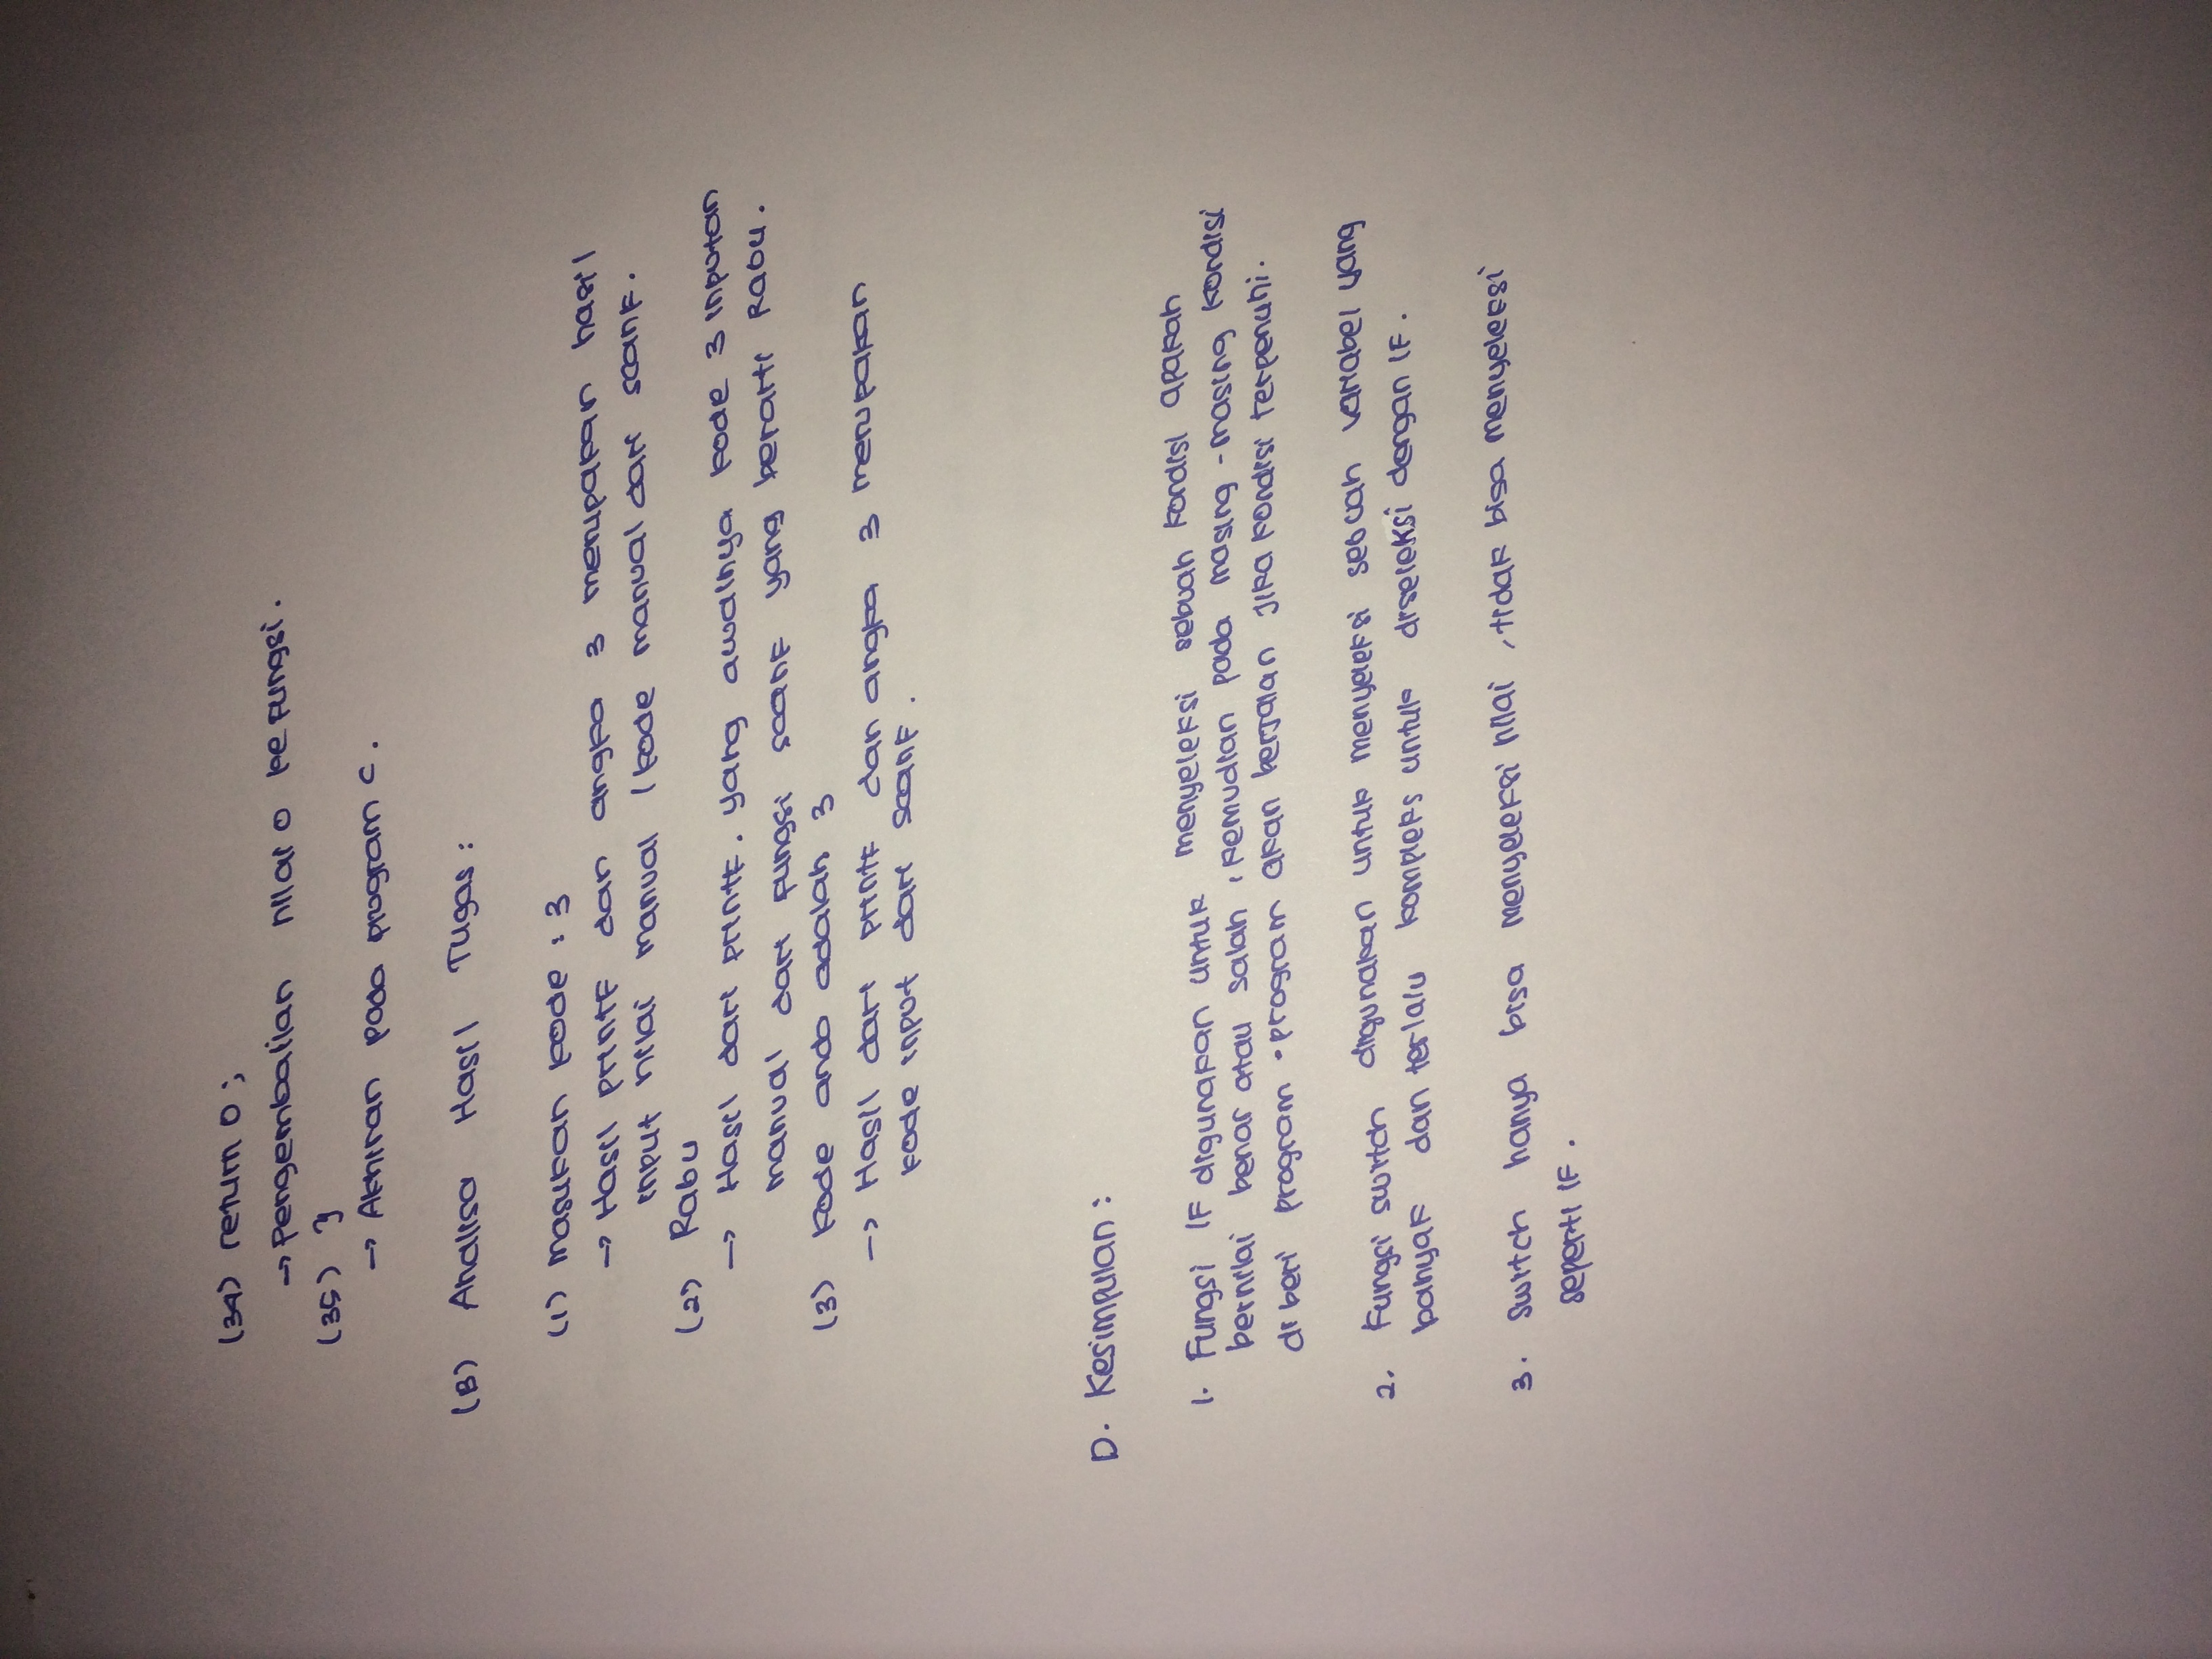 (34) return 0 ;
→ Pengembalian nilai 0 ke fungsi.
(35) }
→ Akhiran pada program C.
(B) Analisa Hasil Tugas :
(1) Masukan kode : 3
→ Hasil printf dan angka 3 merupakan hasil
input nilai manual / kode manual dari scanf.
(2) Rabu
→ Hasil dari printf. yang awalnya kode 3 inputan
manual dari fungsi scanf yang berarti Rabu.
(3) Kode anda adalah 3
→ Hasil dari printf dan angka 3 merupakan
kode input dari scanf.
D. Kesimpulan :
1. Fungsi IF digunakan untuk menyeleksi sebuah kondisi apakah
bernilai benar atau salah, kemudian pada masing-masing kondisi
di beri program. program akan berjalan jika kondisi terpenuhi.
2. Fungsi switch digunakan untuk menyeleksi sebuah variabel yang
banyak dan terlalu kompleks untuk diseleksi dengan IF.
3. Switch hanya bisa menyeleksi nilai, tidak bisa menyeleksi
seperti IF.